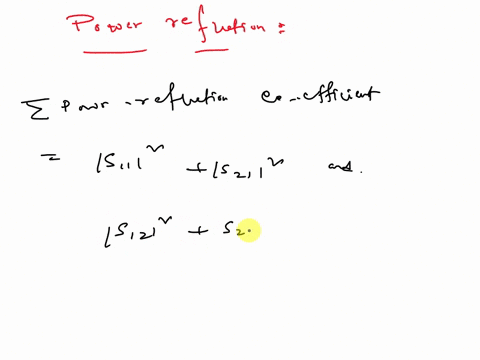 Power refluction :
∑ Power-refluction co-efficient
= |S₁₁|² + |S₂₁|² and.
|S₁₂|² + S₂.